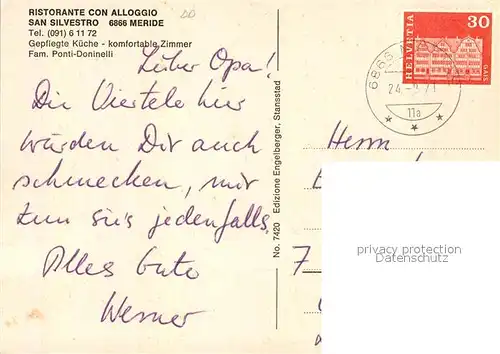 RISTORANTE CON ALLOGGIO
SAN SILVESTRO 6866 MERIDE
Tel. (091) 6 11 72
Gepflegte Küche - komfortable Zimmer
Fam. Ponti-Doninelli
Lieber Opa!
Die Viertele hier
würden Dir auch
schmecken, mir
tun sie's jedenfalls.
Alles Gute
Werner
No. 7420 Edizione Engelberger, Stansstad
HELVETIA
30
GAIS
6866
24.
71
11a
Herrn
7
privacy protection
Datenschutz